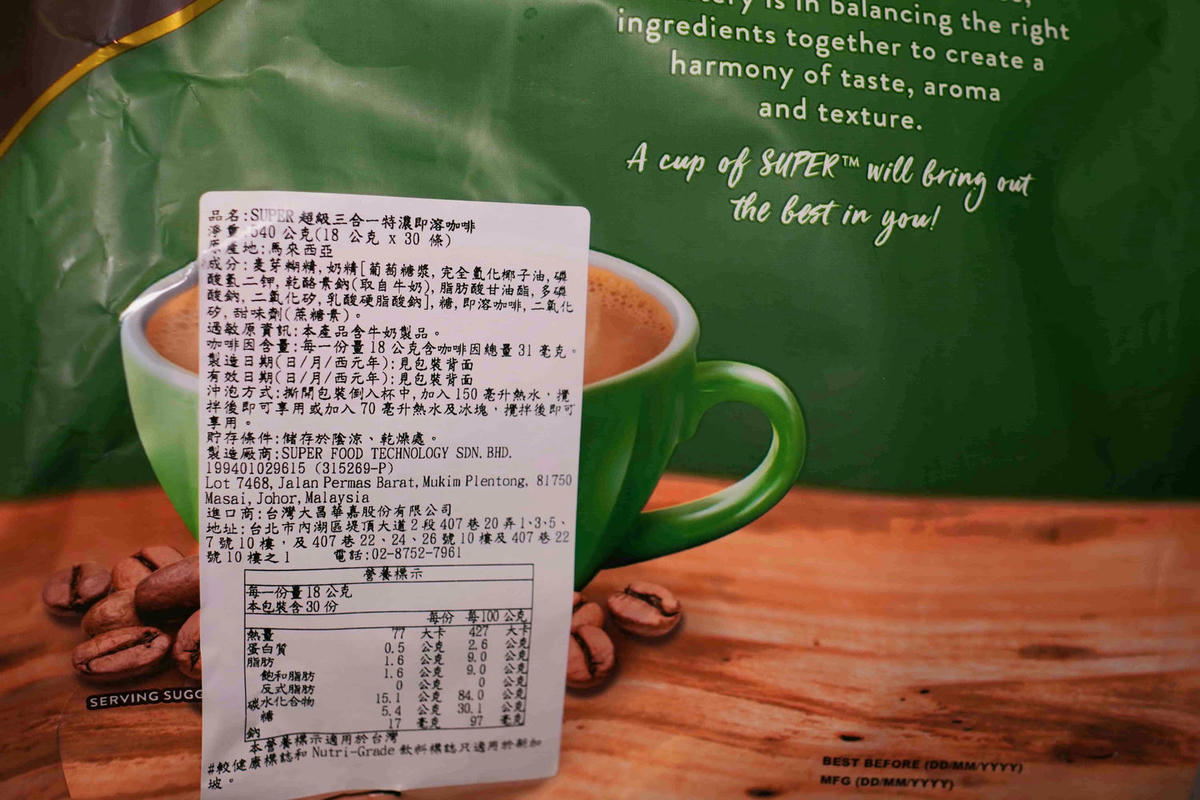 is in balancing the right
ingredients together to create a
harmony of taste, aroma
and texture.
A cup of SUPER™ will bring out
the best in you!
品名:SUPER 超級三合一特濃即溶咖啡
淨重:540 公克(18 公克 x 30 條)
原產地:馬來西亞
成分:麥芽糊精,奶精[葡萄糖漿,完全氫化椰子油,磷
酸氫二鉀,乾酪素鈉(取自牛奶),脂肪酸甘油酯,多磷
酸鈉,二氧化矽,乳酸硬脂酸鈉],糖,即溶咖啡,二氧化
矽,甜味劑(蔗糖素)。
過敏原資訊:本產品含牛奶製品。
咖啡因含量:每一份量 18 公克含咖啡因總量 31 毫克。
製造日期(日/月/西元年):見包裝背面
有效日期(日/月/西元年):見包裝背面
沖泡方式:撕開包裝倒入杯中,加入 150 毫升熱水,攪
拌後即可享用或加入 70 毫升熱水及冰塊,攪拌後即可
享用。
貯存條件:儲存於陰涼、乾燥處。
製造廠商:SUPER FOOD TECHNOLOGY SDN. BHD.
199401029615 (315269-P)
Lot 7468, Jalan Permas Barat, Mukim Plentong, 81750
Masai, Johor, Malaysia
進口商:台灣大昌華嘉股份有限公司
地址:台北市內湖區堤頂大道 2 段 407 巷 20 弄 1、3、5、
7 號 10 樓,及 407 巷 22、24、26 號 10 樓及 407 巷 22
號 10 樓之 1 電話:02-8752-7961
營養標示
每一份量 18 公克
本包裝含 30 份
每份 每 100 公克
熱量 77 大卡 427 大卡
蛋白質 0.5 公克 2.6 公克
脂肪 1.6 公克 9.0 公克
飽和脂肪 1.6 公克 9.0 公克
反式脂肪 0 公克 0 公克
碳水化合物 15.1 公克 84.0 公克
糖 5.4 公克 30.1 公克
鈉 17 毫克 97 毫克
本營養標示適用於台灣
#較健康標誌和 Nutri-Grade 飲料標誌只適用於新加
坡。
SERVING SUGG
BEST BEFORE (DD/MM/YYYY)
MFG (DD/MM/YYYY)